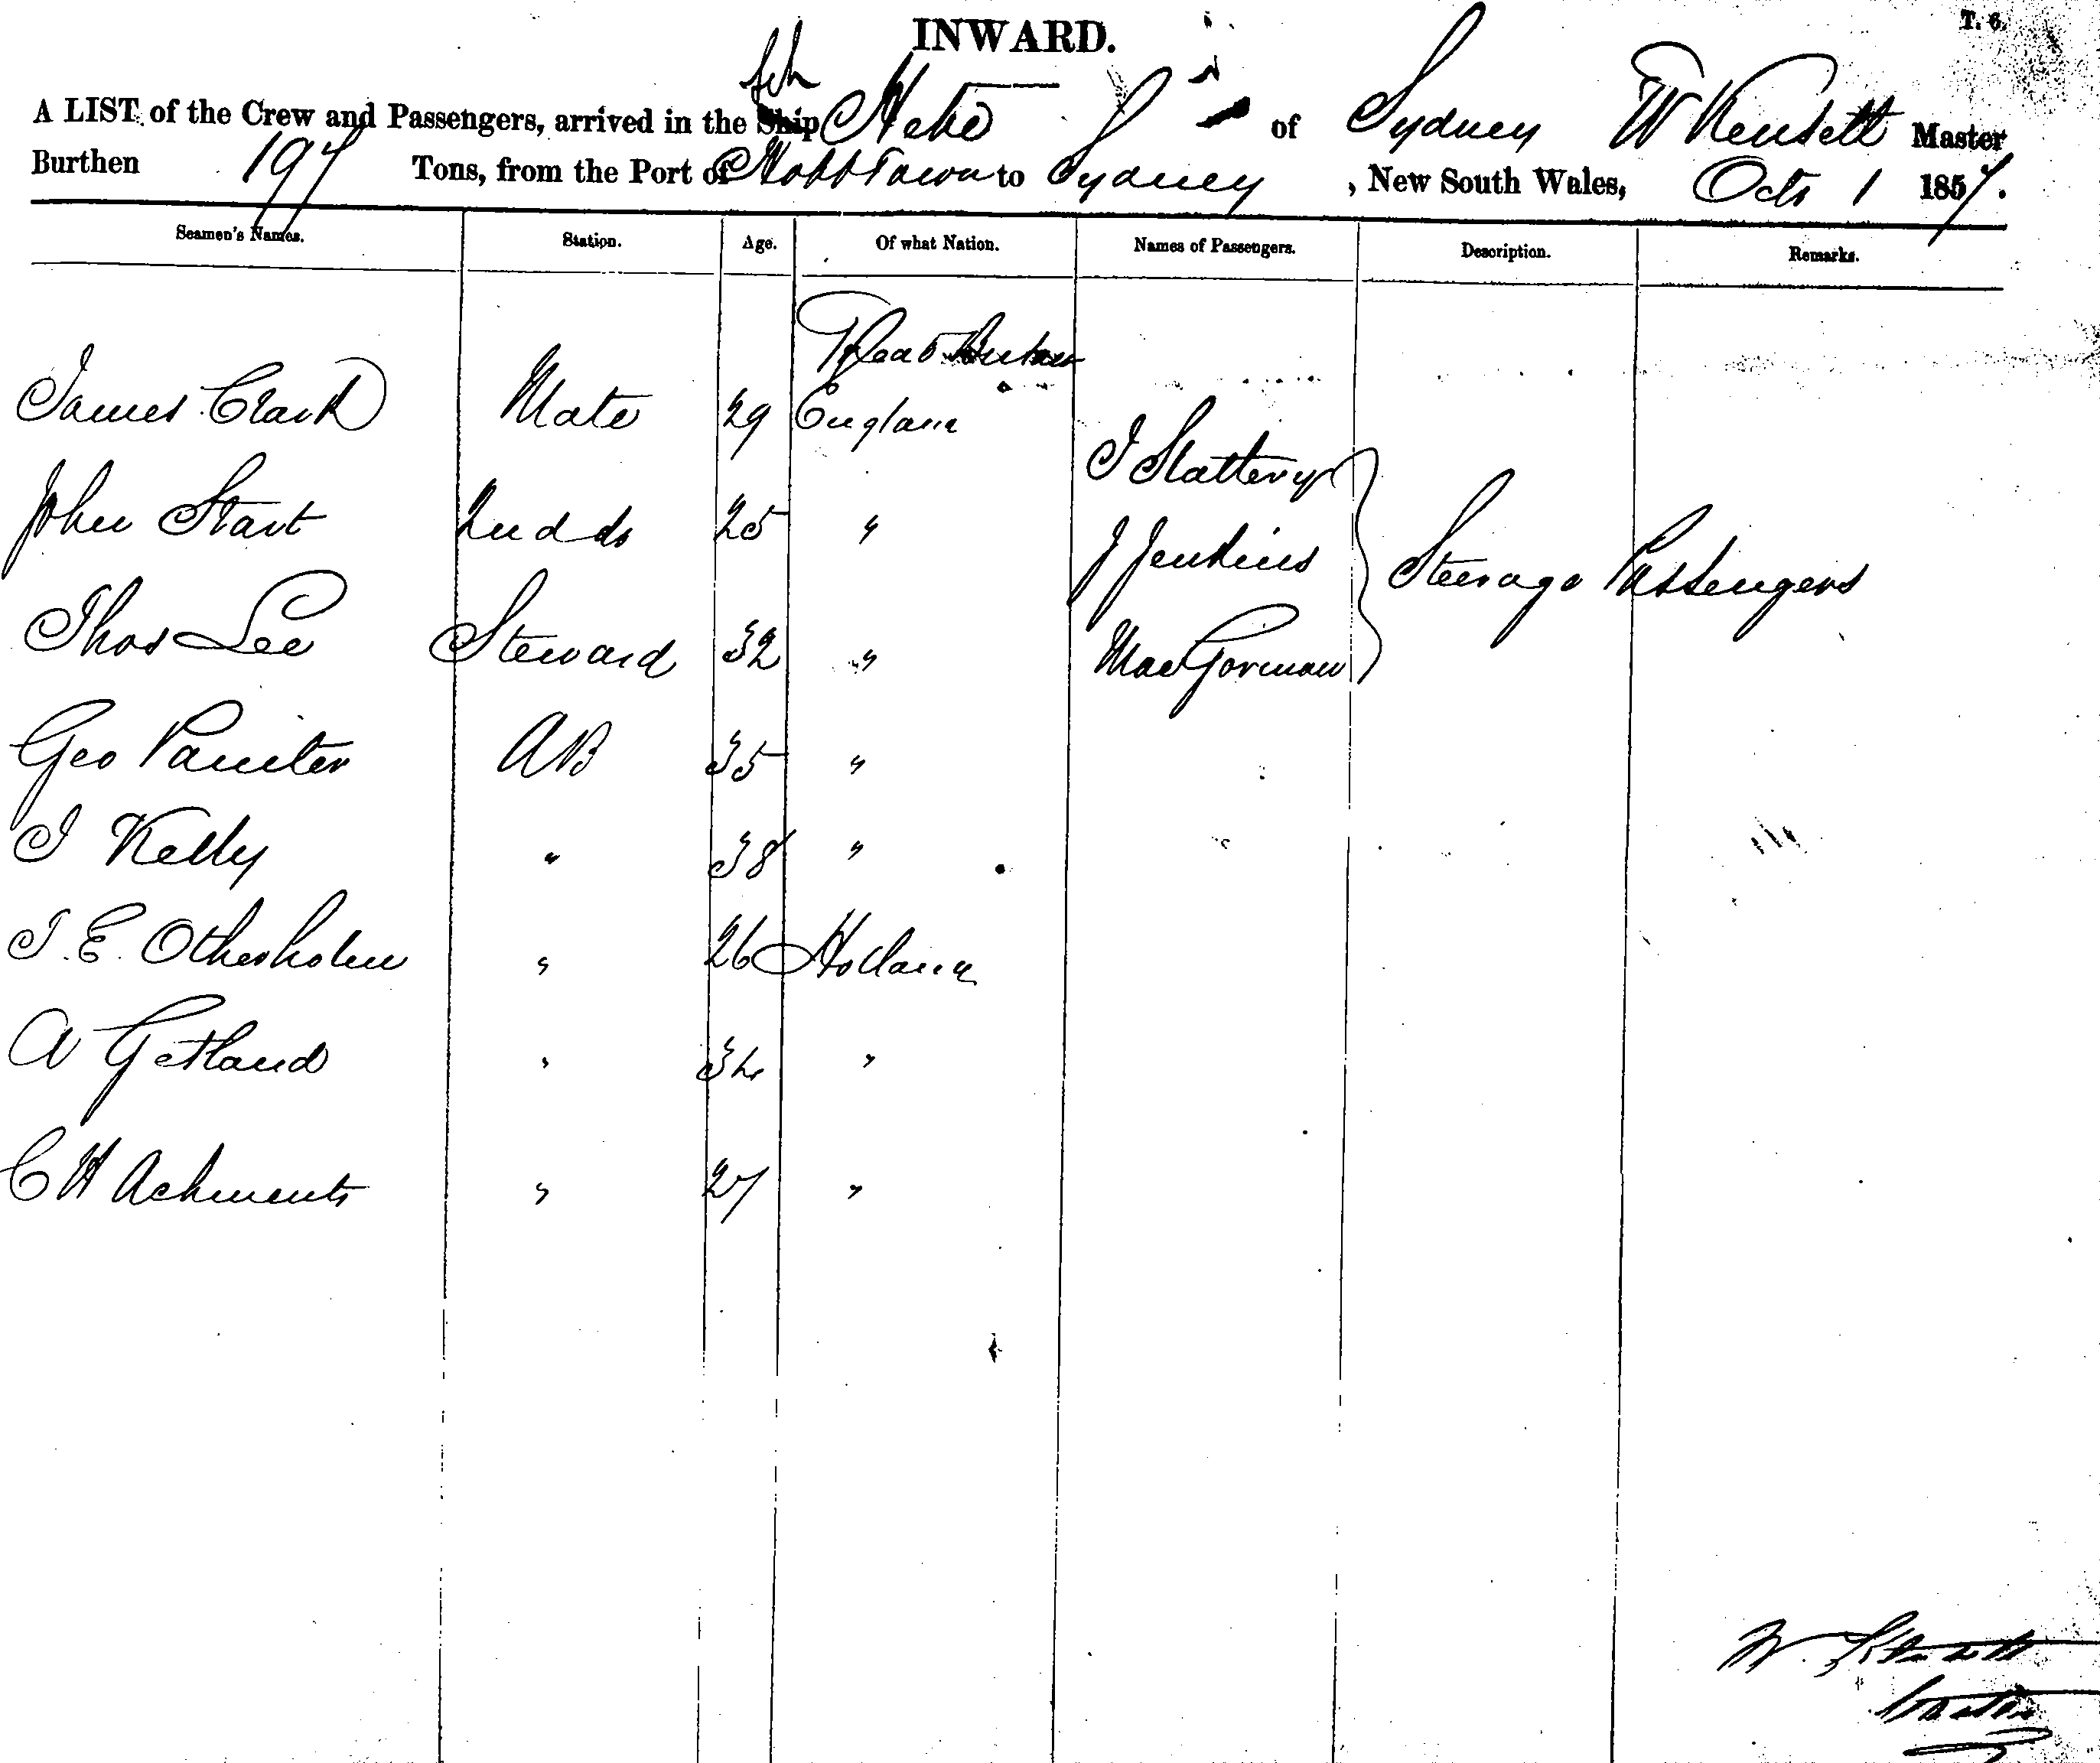 T. 6.
INWARD.
Sch
A LIST of the Crew and Passengers, arrived in the Ship Hebe of Sydney W Kensett Master
Burthen 197 Tons, from the Port of Hobt Town to Sydney, New South Wales, Octr 1 1857.
Seamen's Names. Station. Age. Of what Nation. Names of Passengers. Description. Remarks.
James Clark Mate 29 England
J Slattery
John Start 25 "
J Jenkins Steerage Passengers
Thos Lee Steward 32 "
MacGorman
Geo Painter AB 35 "
J Kelly " 38 "
J. E. Otherholm " 26 Holland
A Getland " "
C H Achments " 27 "
W. Kensett
Master